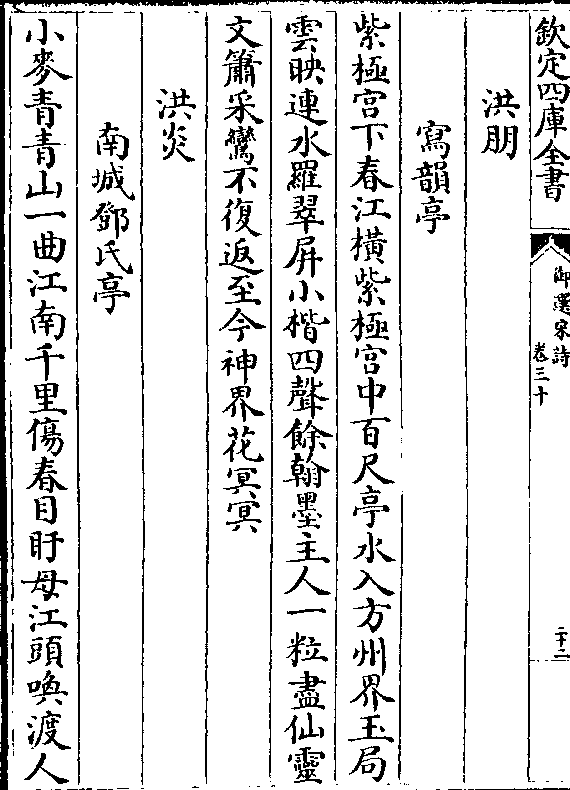 欽定四庫全書
御選宋詩
卷三十
二十二
洪朋
寫韻亭
紫極宮下春江橫紫極宮中百尺亭水入方州界玉局
雲映連水羅翠屏小楷四聲餘翰墨主人一粒盡仙靈
文簫采鸞不復返至今神界花冥冥
洪炎
南城鄧氏亭
小麥青青山一曲江南千里傷春目盱母江頭喚渡人